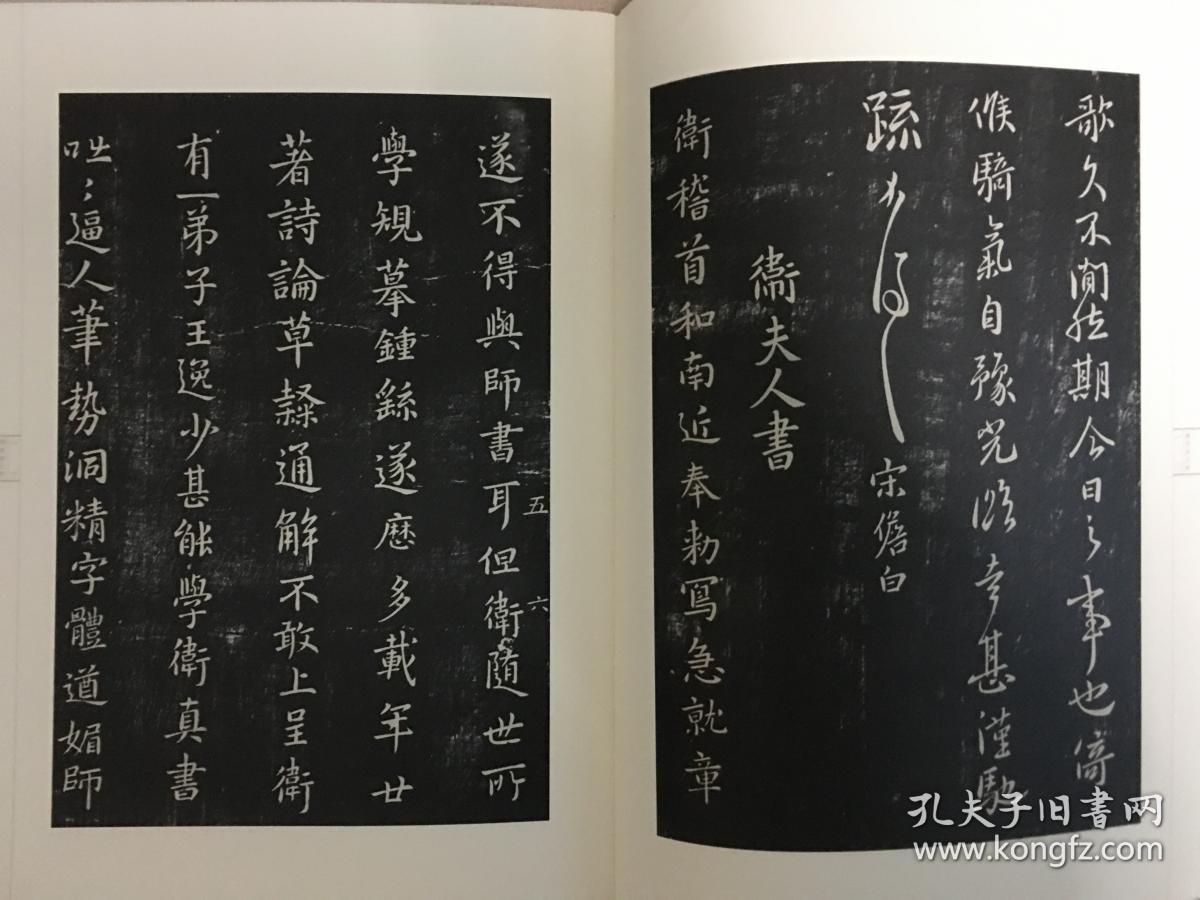 歌久不聞
期今日之事也
候騎氣自豫
幸甚謹馳
疏
宋儋白
衛夫人書
衛稽首和南近奉勅寫急就章
遂不得與師書耳但衛隨世所
五 六
學規摹鍾繇遂歷多載年廿
著詩論草隸通解不敢上呈衛
有一弟子王逸少甚能學衛真書
咄〻逼人筆勢洞精字體遒媚師
孔夫子旧书网
www.kongfz.com